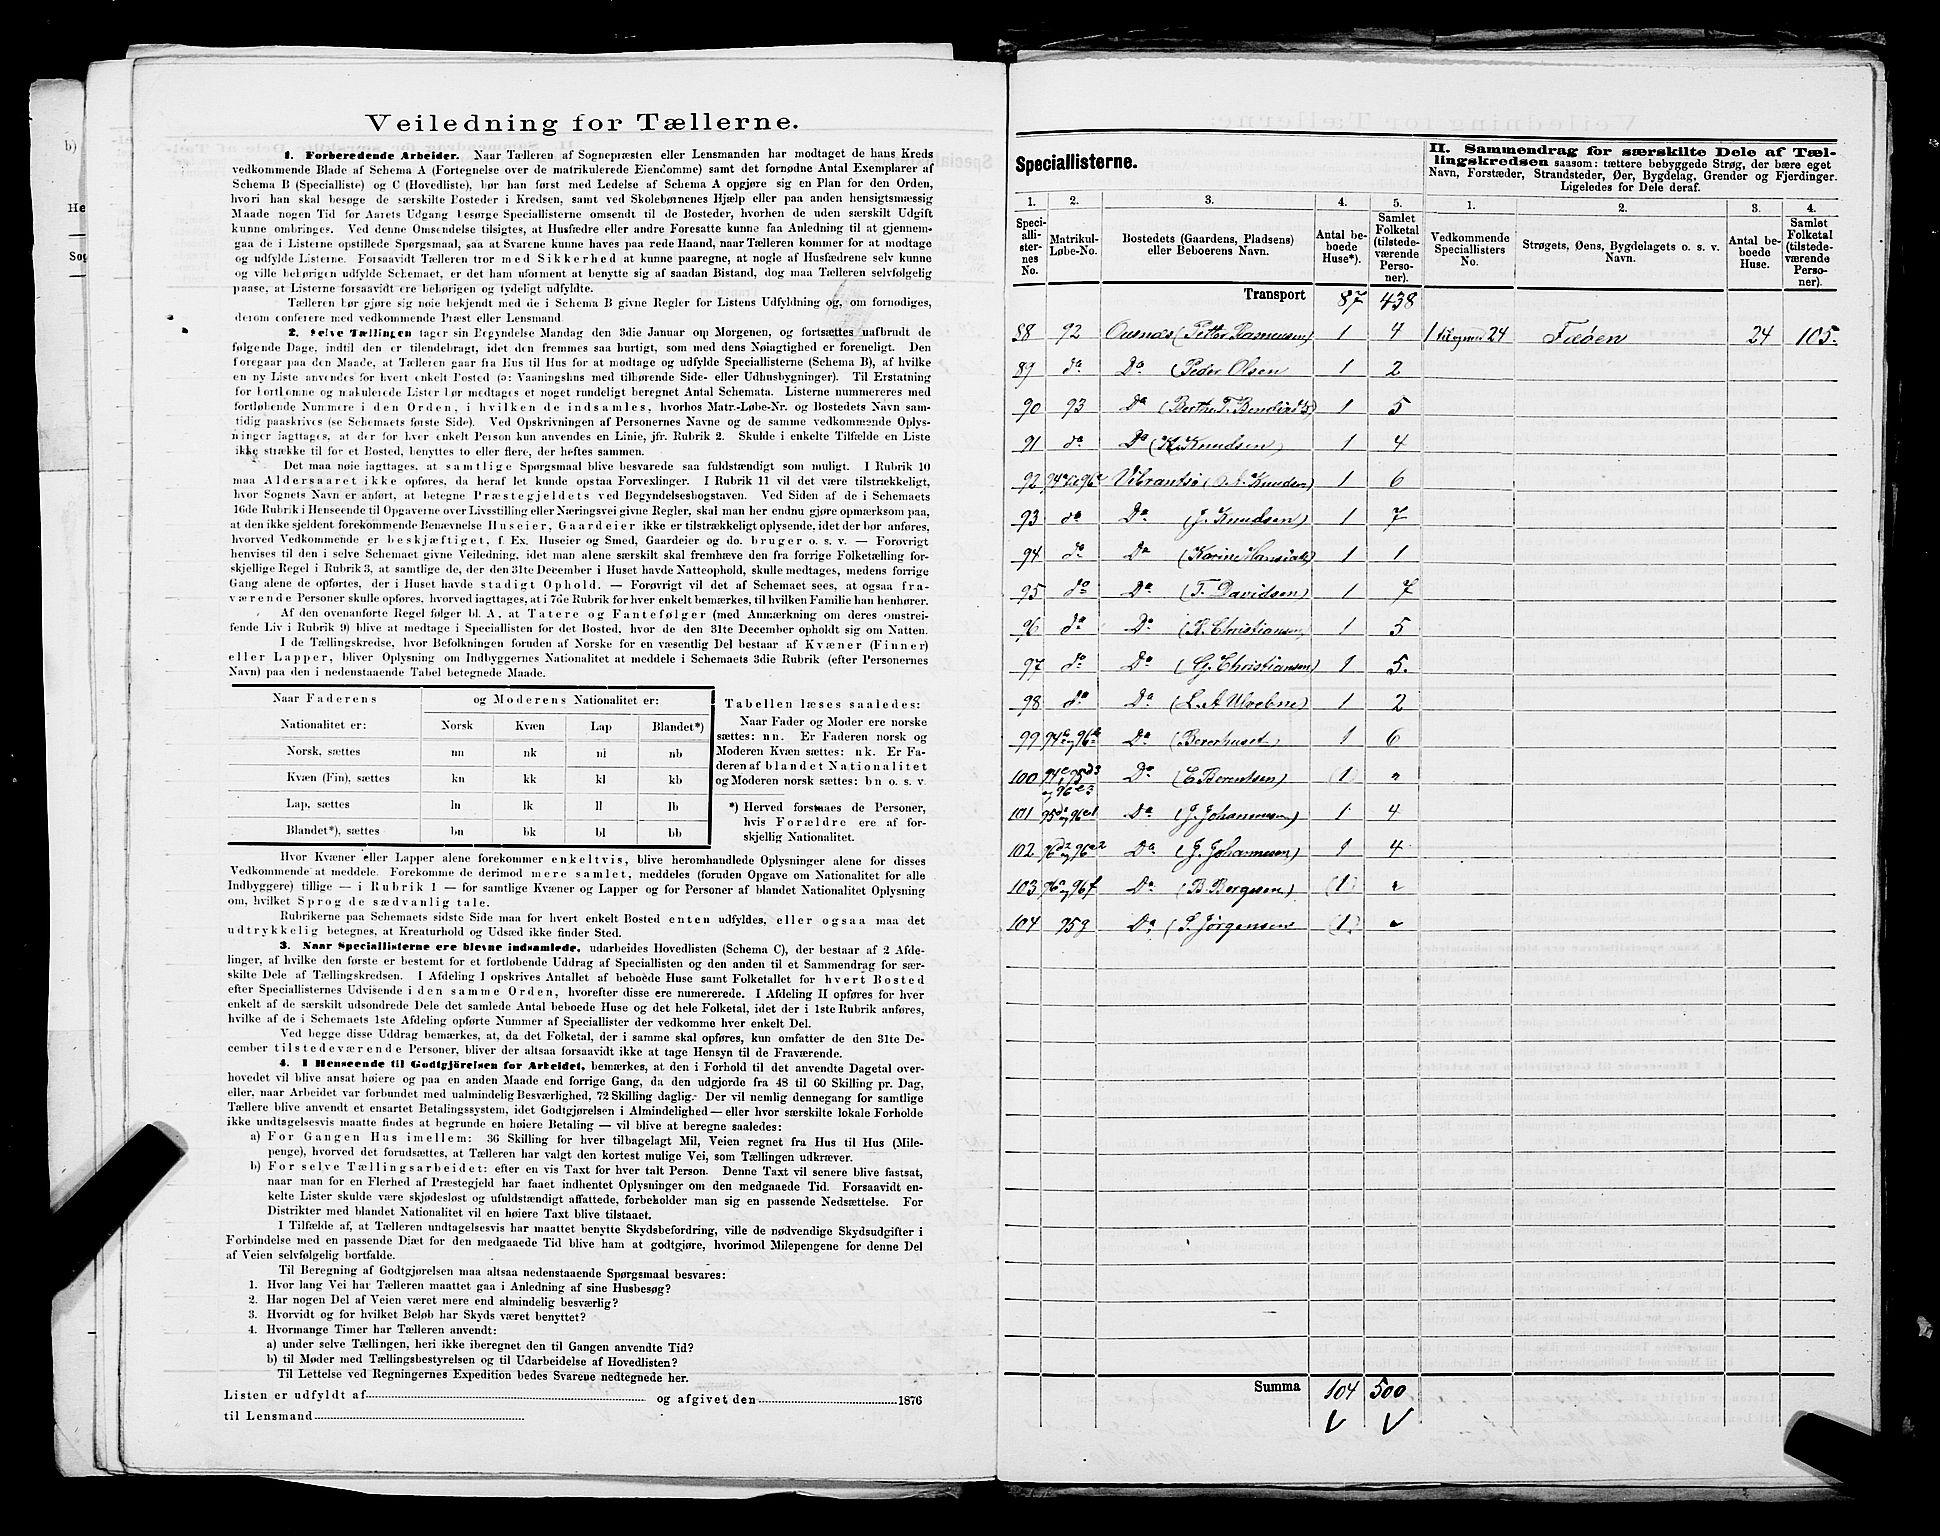 b)
He-
Sog
Veiledning for Tællerne.
1. Forberedende Arbeider. Naar Tælleren af Sognepræsten eller Lensmanden har modtaget de hans Kreds
vedkommende Blade af Schema A (Fortegnelse over de matrikulerede Eiendomme) samt det fornødne Antal Exemplarer af
Schema B (Specialliste) og C (Hovedliste), bør han først med Ledelse af Schema A opgjøre sig en Plan for den Orden,
hvori han skal besøge de særskilte Bosteder i Kredsen, samt ved Skolebørnenes Hjælp eller paa anden hensigtsmæssig
Maade nogen Tid for Aarets Udgang besørge Speciallisterne omsendt til de Bosteder, hvorhen de uden særskilt Udgift
kunne ombringes. Ved denne Omsendelse tilsigtes, at Husfædre eller andre Foresatte kunne faa Anledning til at gjennem-
gaa de i Listerne opstillede Spørgsmaal, saa at Svarene kunne haves paa rede Haand, naar Tælleren kommer for at modtage
og udfylde Listerne. Forsaavidt Tælleren tror med Sikkerhed at kunne paaregne, at nogle af Husfædrene selv kunne
og ville behørigen udfylde Schemaet, er det ham uforment at benytte sig af saadan Bistand, dog maa Tælleren selvfølgelig
paase, at Listerne forsaavidt ere behørigen og tydeligt udfyldte.
Tælleren bør gjøre sig nøie bekjendt med de i Schema B givne Regler for Listens Udfyldning og, om fornødiges,
derom conferere med vedkommende Præst eller Lensmand.
2. Selve Tællingen tager sin Begyndelse Mandag den 3die Januar om Morgenen, og fortsættes uafbrudt de
følgende Dage, indtil den er tilendebragt, idet den fremmes saa hurtigt, som med dens Nøiagtighed er foreneligt. Den
foregaar paa den Maade, at Tælleren gaar fra Hus til Hus for at modtage og udfylde Speciallisterne (Schema B), af hvilke
en ny Liste anvendes for hvert enkelt Bosted (ɔ: Vaaningshus med tilhørende Side- eller Udhusbygninger). Til Erstatning
for bortkomne og makulerede Lister bør medtages et noget rundeligt beregnet Antal Schemata. Listerne nummereres med
fortløbende Nummere i den Orden, i hvilken de indsamles, hvorhos Matr.-Løbe-Nr. og Bostedets Navn sam-
tidig paaskrives (se Schemaets første Side). Ved Opskrivningen af Personernes Navne og de samme vedkommende Oplys-
ninger iagttages, at der for hver enkelt Person kun anvendes en Linie, jfr. Rubrik 2. Skulde i enkelte Tilfælde en Liste
ikke strække til for et Bosted, benyttes to eller flere, der heftes sammen.
Det maa nøie iagttages, at samtlige Spørgsmaal blive besvarede saa fuldstændigt som muligt. I Rubrik 10
maa Aldersaaret ikke opføres, da heraf let kunde opstaa Forvexlinger. I Rubrik 11 vil det være tilstrækkeligt,
hvor Sognets Navn er anført, at betegne Præstegjeldets ved Begyndelsesbogstaven. Ved Siden af de i Schemaets
16de Rubrik i Henseende til Opgaverne over Livsstilling eller Næringsvei givne Regler, skal man her endnu gjøre opmærksom paa,
at den ikke sjeldent forekommende Benævnelse Huseier, Gaardeier ikke er tilstrækkeligt oplysende, idet der bør anføres,
hvorved Vedkommende er beskjæftiget, f. Ex. Huseier og Smed, Gaardeier og do. bruger o. s. v. — Forøvrigt
henvises til den i selve Schemaet givne Veiledning, idet man alene særskilt skal fremhæve den fra forrige Folketælling for-
skjellige Regel i Rubrik 3, at samtlige de, der den 31te December i Huset havde Natteophold, skulle medtages, medens forrige
Gang alene de opførtes, der i Huset havde stadigt Ophold. — Forøvrigt vil det af Schemaet sees, at ogsaa fra-
værende Personer skulle opføres, hvorved iagttages, at i 7de Rubrik for hver enkelt bemærkes, til hvilken Familie han henhører.
Af den ovenanførte Regel følger bl. A., at Tatere og Fantefølger (med Anmærkning om deres omstrei-
fende Liv i Rubrik 9) blive at medtage i Speciallisten for det Bosted, hvor de den 31te December opholdt sig om Natten.
I de Tællingskredse, hvor Befolkningen foruden af Norske for en væsentlig Del bestaar af Kvæner (Finner)
eller Lapper, bliver Oplysning om Indbyggernes Nationalitet at meddele i Schemaets 3die Rubrik (efter Personernes
Navn) paa den i nedenstaaende Tabel betegnede Maade.
Naar Faderens og Moderens Nationalitet er:
Nationalitet er: Norsk Kvæn Lap Blandet*)
Norsk, sættes nn nk nl nb
Kvæn (Fin), sættes kn kk kl kb
Lap, sættes ln lk ll lb
Blandet*), sættes bn bk bl bb
Tabellen læses saaledes:
Naar Fader og Moder ere norske
sættes: nn. Er Faderen norsk og
Moderen Kvæn sættes: nk. Er Fa-
deren af blandet Nationalitet
og Moderen norsk sættes: bn o. s. v.
*) Herved forstaaes de Personer,
hvis Forældre ere af for-
skjellig Nationalitet.
Hvor Kvæner eller Lapper alene forekommer enkeltvis, blive heromhandlede Oplysninger alene for disses
Vedkommende at meddele. Forekomme de derimod mere samlet, meddeles (foruden Opgave om Nationalitet for alle
Indbyggere) tillige — i Rubrik 1 — for samtlige Kvæner og Lapper og for Personer af blandet Nationalitet Oplysning
om, hvilket Sprog de sædvanlig tale.
Rubrikerne paa Schemaets sidste Side maa for hvert enkelt Bosted enten udfyldes, eller ogsaa maa det
udtrykkelig betegnes, at Kreaturhold og Udsæd ikke finder Sted.
3. Naar Speciallisterne ere blevne indsamlede, udarbeides Hovedlisten (Schema C), der bestaar af 2 Afde-
linger, af hvilke den første er bestemt for et fortløbende Uddrag af Speciallisten og den anden til et Sammendrag for sær-
skilte Dele af Tællingskredsen. I Afdeling I opskrives Antallet af beboede Huse samt Folketallet for hvert Bosted
efter Speciallisternes Udvisende i den samme Orden, hvorefter disse ere numererede. I Afdeling II opføres for hver
enkelt af de særskilt udsondrede Dele det samlede Antal beboede Huse og det hele Folketal, idet der i 1ste Rubrik anføres,
hvilke af de i Schemaets 1ste Afdeling opførte Nummer af Speciallister der vedkomme hver enkelt Del.
Ved begge disse Uddrag bemærkes, at, da det Folketal, der i samme skal opføres, kun omfatter de den 31te De-
cember tilstedeværende Personer, bliver der altsaa forsaavidt ikke at tage Hensyn til de Fraværende.
4. I Henseende til Godtgjörelsen for Arbeidet, bemærkes, at den i Forhold til det anvendte Dagetal over-
hovedet vil blive ansat høiere og paa en anden Maade end forrige Gang, da den udgjorde fra 48 til 60 Skilling pr. Dag,
eller, naar Arbeidet var forbundet med ualmindelig Besværlighed, 72 Skilling daglig. Der vil nemlig dennegang for samtlige
Tællere blive anvendt et ensartet Betalingssystem, idet Godtgjørelsen i Almindelighed — eller hvor særskilte lokale Forholde
ikke undtagelsesvis maatte findes at begrunde en høiere Betaling — vil blive at beregne saaledes:
a) For Gangen Hus imellem: 36 Skilling for hver tilbagelagt Mil, Veien regnet fra Hus til Hus (Mile-
penge), hvorved det forudsættes, at Tælleren har valgt den kortest mulige Vei, som Tællingen udkræver.
b) For selve Tællingsarbeidet: efter en vis Taxt for hver talt Person. Denne Taxt vil senere blive fastsat,
naar man for en Flerhed af Præstegjeld har faaet indhentet Oplysninger om den medgaaede Tid. Forsaavidt en-
kelte Lister skulde være skjødesløst og ufuldstændigt affattede, forbeholder man sig en passende Nedsættelse. For
Distrikter med blandet Nationalitet vil en høiere Taxt blive tilstaaet.
I Tilfælde af, at Tælleren undtagelsesvis har maattet benytte Skydsbefordring, ville de nødvendige Skydsudgifter i
Forbindelse med en passende Diæt for den medgaaede Tid blive ham at godtgjøre, hvorimod Milepengene for denne Del
af Veien selvfølgelig bortfalde.
Til Beregning af Godtgjørelsen maa altsaa nedenstaaende Spørgsmaal besvares:
1. Hvor lang Vei har Tælleren maattet gaa i Anledning af sine Husbesøg?
2. Har nogen Del af Veien været mere end almindelig besværlig?
3. Hvorvidt og for hvilket Beløb har Skyds været benyttet?
4. Hvormange Timer har Tælleren anvendt:
a) under selve Tællingen, heri ikke iberegnet den til Gangen anvendte Tid?
b) til Møder med Tællingsbestyrelsen og til Udarbeidelse af Hovedlisten?
Til Lettelse ved Regningernes Expedition bedes Svarene nedtegnede her.
Listen er udfyldt af og afgivet den 1876
til Lensmand
Speciallisterne.
II. Sammendrag for særskilte Dele af Tæl-
lingskredsen saasom: tættere bebyggede Strøg, der bære eget
Navn, Forstæder, Strandsteder, Øer, Bygdelag, Grender og Fjerdinger.
Ligeledes for Dele deraf.
1. 2. 3. 4. 5. 1. 2. 3. 4.
Speci-
alli-
ster-
nes
No.
Matrikul-
Løbe-No.
Bostedets (Gaardens, Pladsens)
eller Beboerens Navn.
Antal be-
boede
Huse*).
Samlet
Folketal
(tilstede-
værende
Perso-
ner).
Vedkommende
Speciallisters
No.
Strøgets, Øens, Bygdelagets o. s. v.
Navn.
Antal be-
boede
Huse.
Samlet
Folketal
(tilstede-
værende
Perso-
ner).
Transport 87 438
88 92 Ousnas (Petter Rasmussen) 1 4 1 til og med 24 Fæøen 24 105.
89 do Do (Peder Olsen 1 2
90 93 Do (Berthe T. 1 5
91 do Do (K. Knudsen) 1 4
92 Vibrantsö Knudsen) 1 6
93 do Do (J. Knudsen) 1 7
94 do Do (Karine 1 1
95 do Do (T. Davidsen) 1 7
96 do Do (K. Christiansen 1 5
97 do Do (G. Christiansen) 1 5.
98 do Do (L. A. 1 2
99 Do 1 6
100 Do (C Berentsen) (1) "
101 Do (J. Johannesen) 1 4
102 Do (J. Johannesen) 1 4
103 Do (B. Borgesen) (1) "
104 95g Do (S. Jörgensen (1) "
Summa 104 500